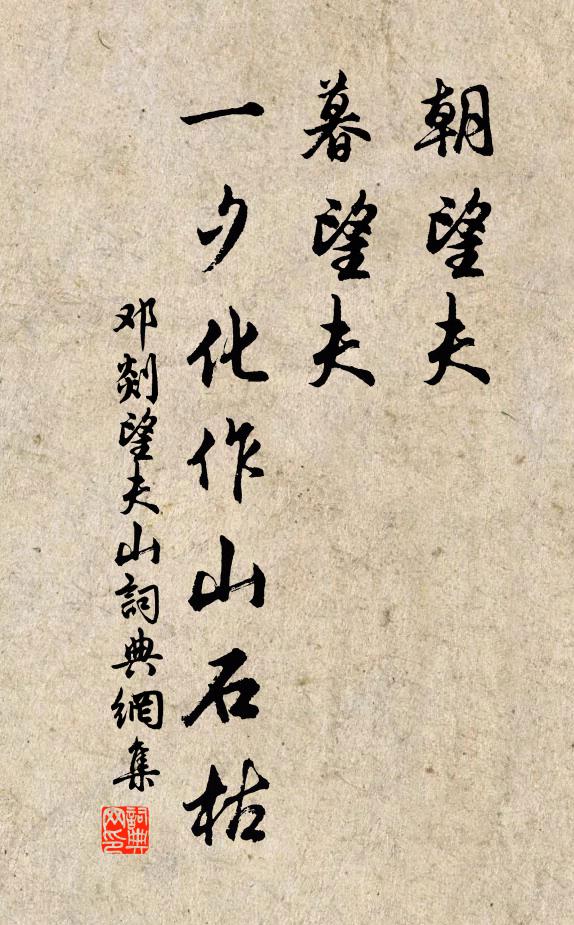 朝望夫
暮望夫
一夕化作山石枯
邓剡望夫山詞典網集
詞典
网印